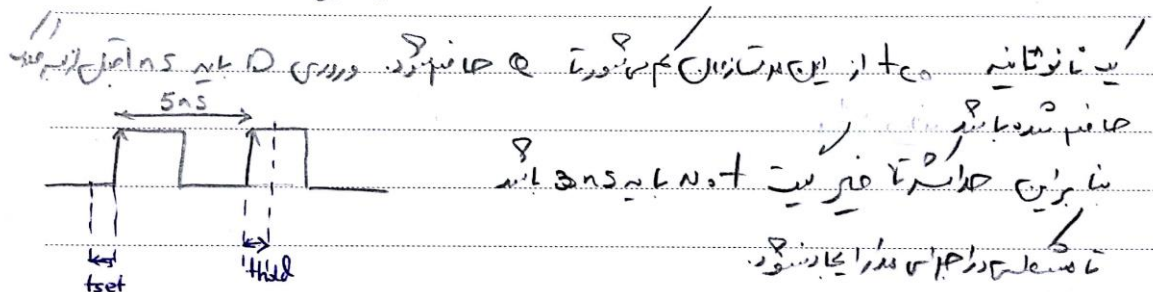 یک نانو ثانیه tco از این مدت زمان کم می شود تا Q حاضر شود. ورودی D باید 1ns قبل از لبه کلاک
حاضر شده باشد
5ns
بنابراین حداکثر تاخیر گیت Not باید 3ns باشد
تا مشکلی در اجرای مدار ایجاد نشود.
tset
thold